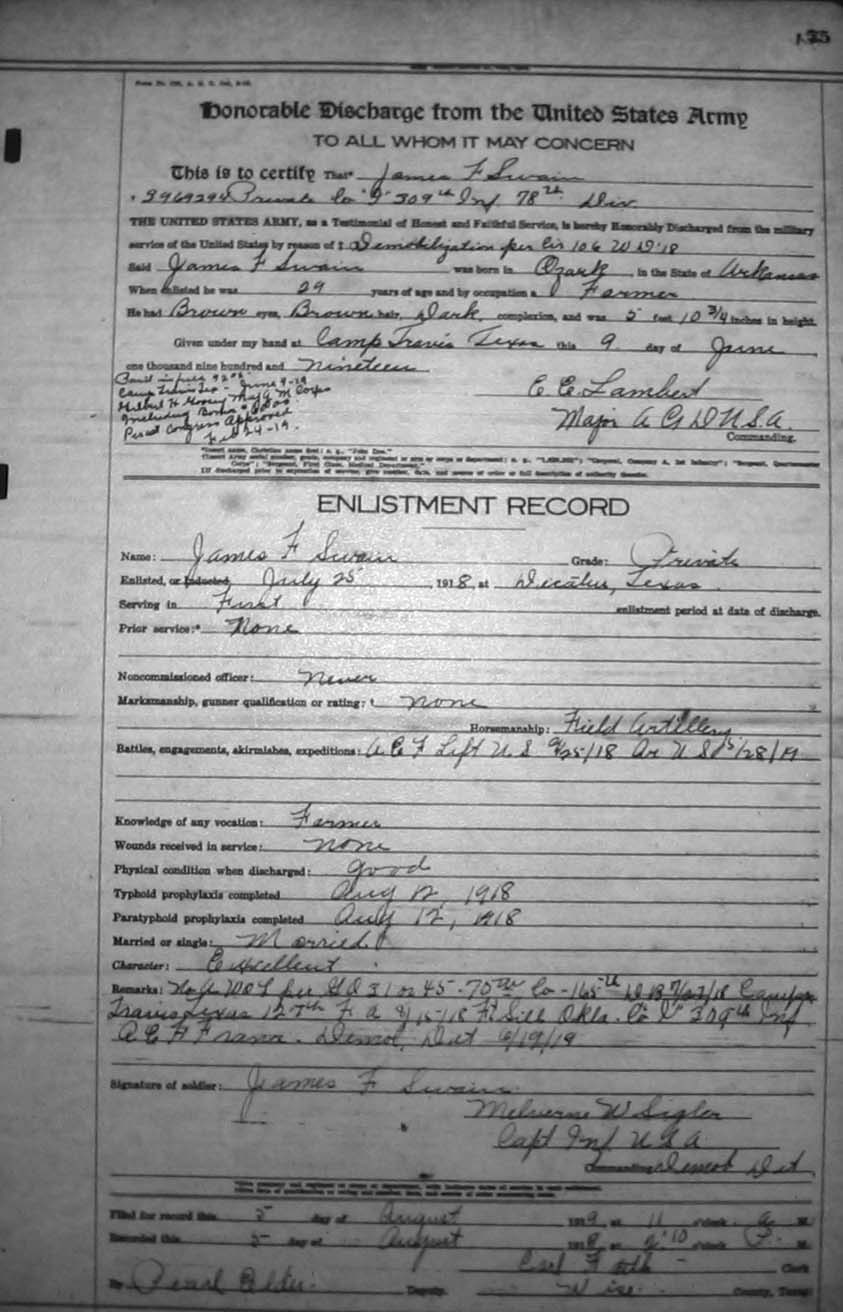 Honorable Discharge from the United States Army
TO ALL WHOM IT MAY CONCERN
This is to certify That* James F Swain
Private Co "I" 309th Inf 78th Div
THE UNITED STATES ARMY, as a Testimonial of Honest and Faithful Service, is hereby Honorably Discharged from the military
service of the United States by reason of Demobilization per Cir 106 W D '18
Said James F Swain was born in Ozark, in the State of Arkansas
When enlisted he was 29 years of age and by occupation a Farmer
He had Brown eyes, Brown hair, Dark complexion, and was 5 feet 10 3/4 inches in height.
Given under my hand at Camp Travis Texas this 9 day of June,
one thousand nine hundred and nineteen
Camp Travis Tex - June 9-19
Including Bonus
Congress Approved
Feb 24-19.
E E Lambert
Major A G D U.S.A.
Commanding.
ENLISTMENT RECORD
Name: James F Swain Grade: Private
Enlisted, or Inducted, July 25, 1918, at Decatur, Texas
Serving in First enlistment period at date of discharge.
Prior service:* None
Noncommissioned officer: Never
Marksmanship, gunner qualification or rating: none
Horsemanship: Field Artillery
Battles, engagements, skirmishes, expeditions: A E F Left U S 9/25/18 Ar U S 5/28/19
Knowledge of any vocation: Farmer
Wounds received in service: none
Physical condition when discharged: good
Typhoid prophylaxis completed Aug 12, 1918
Paratyphoid prophylaxis completed Aug 12, 1918
Married or single: Married
Character: Excellent
Remarks: No A W O L per G O 31 or 45 - 70th Co - 165th D B Camp
Travis Texas 127th F. A Ft Sill Okla. Co "I" 309th Inf
A E F France. Demob, Det 6/19/19
Signature of soldier: James F Swain
W Sigler
Capt Inf U S A
Commanding Demob Det,
Filed for record this 5 day of August 1919 at 11 o'clock A M.
Recorded this 5 day of August at 2:10 o'clock P. M.
Clerk
By Pearl Deputy. Wise County, Texas